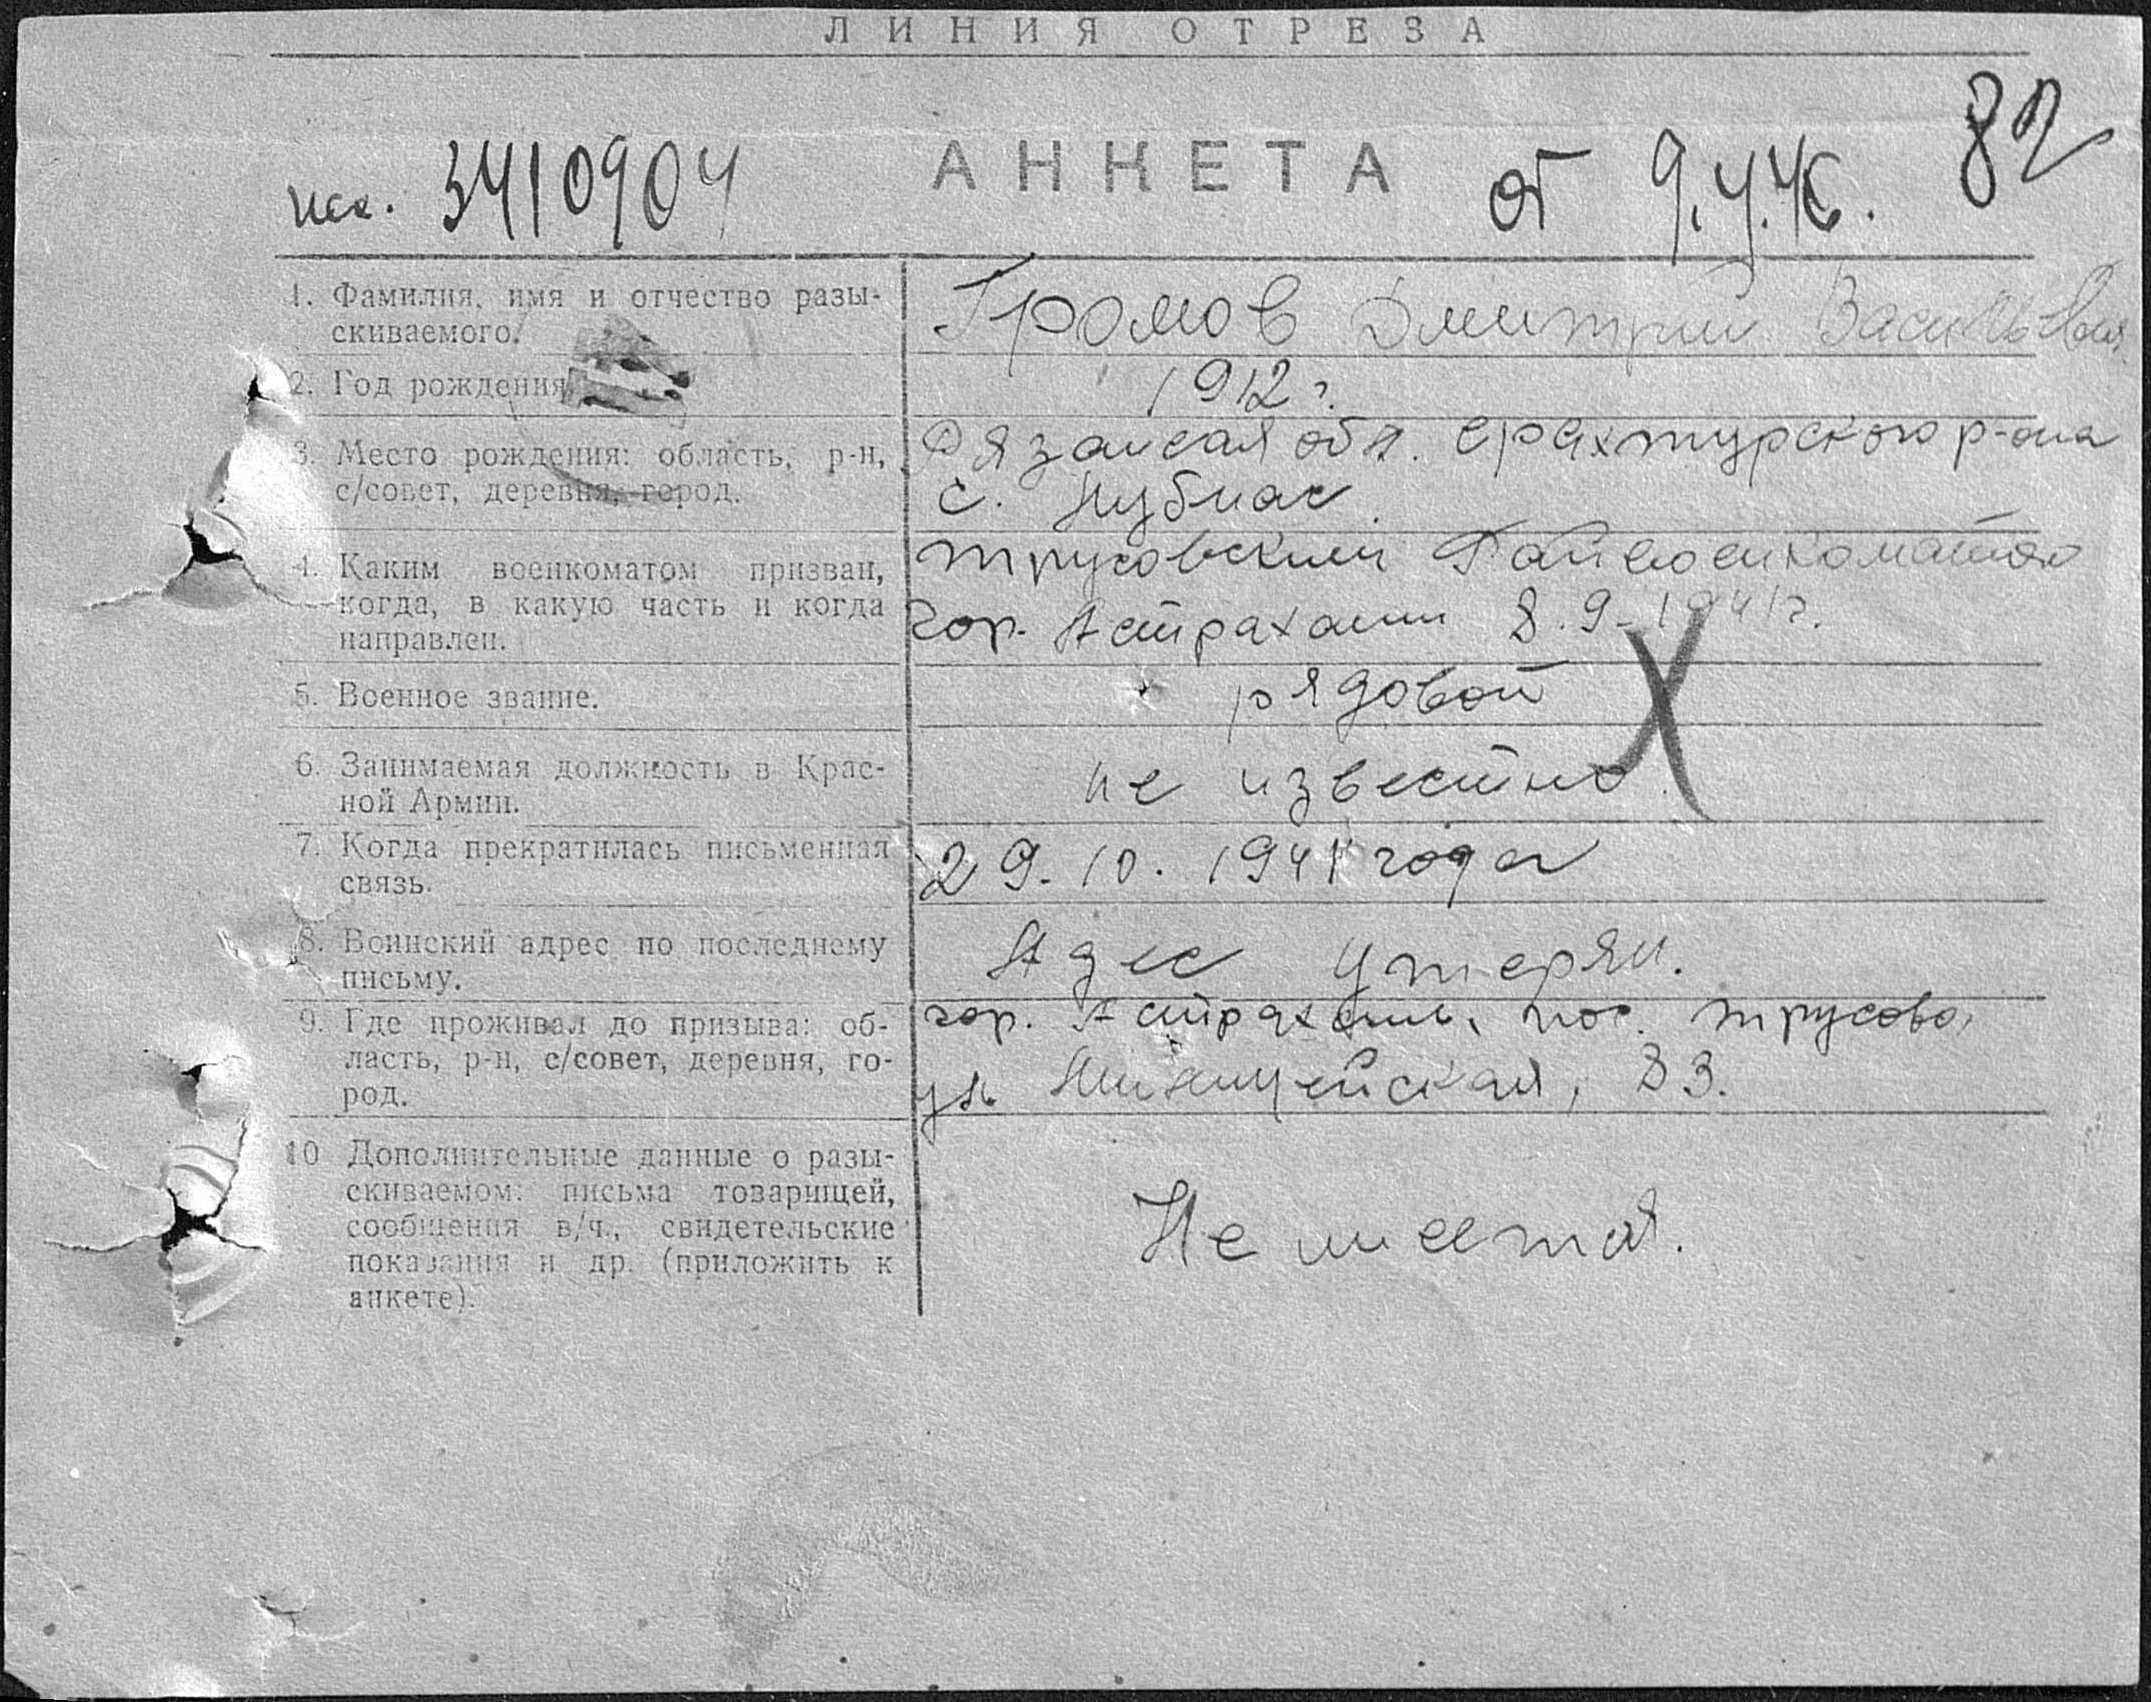 ЛИНИЯ ОТРЕЗА
82
исх. 3410904 АНКЕТА от 9.4.46.
1. Фамилия, имя и отчество разы-
скиваемого.
Громов Дмитрий Васильевич
2. Год рождения
1912 г.
3. Место рождения: область, р-н,
с/совет, деревня, город.
Рязанская обл. Ерахтурского р-она
с.
4. Каким военкоматом призван,
когда, в какую часть и когда
направлен.
Трусовским Райвоенкоматом
гор. Астрахани 8.9-1941 г.
5. Военное звание.
рядовой
6. Занимаемая должность в Крас-
ной Армии.
не известно.
7. Когда прекратилась письменная
связь.
29.10.1941 года
8. Воинский адрес по последнему
письму.
Адес утерян.
9. Где проживал до призыва: об-
ласть, р-н, с/совет, деревня, го-
род.
гор. Астрахань, пос. Трусово,
ул. 33.
10 Дополнительные данные о разы-
скиваемом: письма товарищей,
сообщения в/ч., свидетельские
показания и др. (приложить к
анкете).
Не